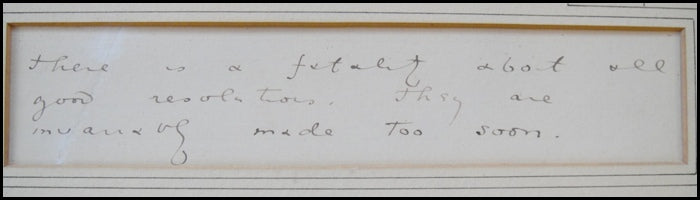 There is a fatality about all
good resolutions. They are
invariably made too soon.